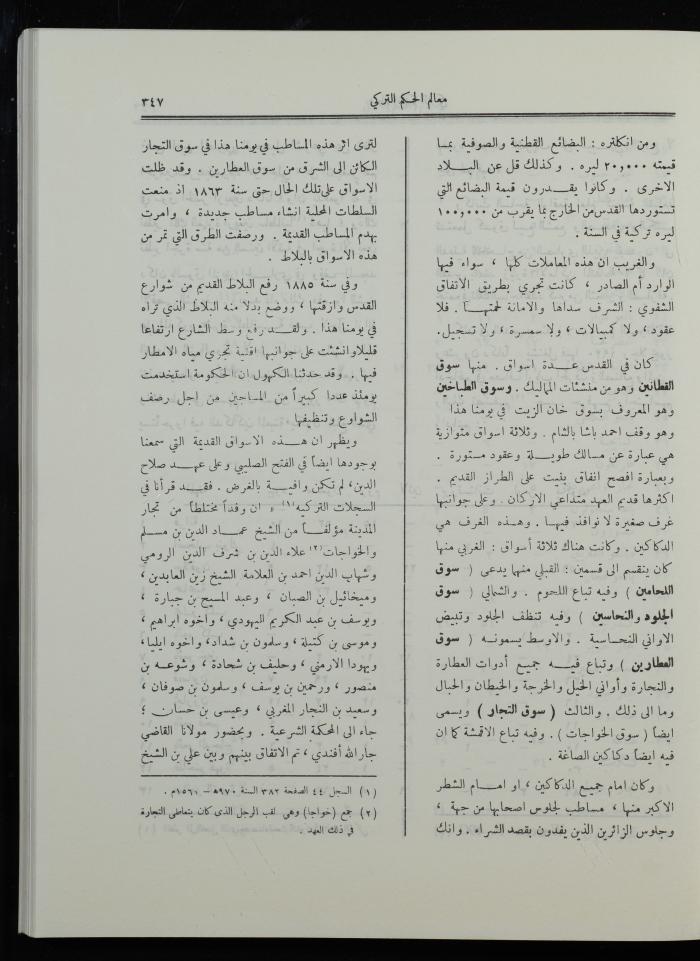 معالم الحكم التركي
٣٤٧
ومن انكلتره : البضائع القطنية والصوفية بما
قيمته ٢٠,٠٠٠ ليره . وكذلك قل عن البلاد
الاخرى . وكانوا يقدرون قيمة البضائع التي
تستوردها القدس من الخارج بما يقرب من ١٠٠,٠٠٠
ليره تركية في السنة .
والغريب ان هذه المعاملات كلها ، سواء فيها
الوارد أم الصادر ، كانت تجري بطريق الاتفاق
الشفوي : الشرف سداها والامانة لحمتها . فلا
عقود ، ولا كمبيالات ، ولا سمسرة ، ولا تسجيل .
كان في القدس عدة اسواق . منها سوق
القطانين وهو من منشئات المماليك . وسوق الطباخين
وهو المعروف بسوق خان الزيت في يومنا هذا
وهو وقف احمد باشا بالشام . وثلاثة اسواق متوازية
هي عبارة عن مسالك طويلة وعقود مستورة .
وبعبارة افصح انفاق بنيت على الطراز القديم .
اكثرها قديم العهد متداعي الاركان . وعلى جوانبها
غرف صغيرة لا نوافذ فيها . وهذه الغرف هي
الدكاكين . وكانت هناك ثلاثة أسواق : الغربي منها
كان ينقسم الى قسمين : القبلي منها يدعى ( سوق
اللحامين ) وفيه تباع اللحوم . والشمالي ( سوق
الجلود والنحاسين ) وفيه تنظف الجلود وتبيض
الاواني النحاسية . والاوسط يسمونه ( سوق
العطارين ) وتباع فيه جميع أدوات العطارة
والنجارة وأواني الخيل والخرجة والخيطان والحبال
وما الى ذلك . والثالث ( سوق التجار ) ويسمى
ايضاً ( سوق الخواجات ) . وفيه تباع الاقمشة كما ان
فيه ايضاً دكاكين الصاغة .
وكان امام جميع الدكاكين ، او امام الشطر
الاكبر منها ، مساطب لجلوس اصحابها من جهة ،
وجلوس الزائرين الذين يفدون بقصد الشراء . وانك
لترى اثر هذه المساطب في يومنا هذا في سوق التجار
الكائن الى الشرق من سوق العطارين . وقد ظلت
الاسواق على تلك الحال حتى سنة ١٨٦٣ اذ منعت
السلطات المحلية انشاء مساطب جديدة ، وامرت
بهدم المساطب القديمة . ورصفت الطرق التي تمر من
هذه الاسواق بالبلاط .
وفي سنة ١٨٨٥ رفع البلاط القديم من شوارع
القدس وازقتها ، ووضع بدلا منه البلاط الذي تراه
في يومنا هذا . ولقد رفع وسط الشارع ارتفاعا
قليلا وانشئت على جوانبها اقنية تجري مياه الامطار
فيها . وقد حدثنا الكهول ان الحكومة استخدمت
يومئذ عددا كبيراً من المساجين من اجل رصف
الشوارع وتنظيفها
ويظهر ان هذه الاسواق القديمة التي سمعنا
بوجودها ايضاً في الفتح الصليبي وعلى عهد صلاح
الدين ، لم تكن وافية بالغرض . فقد قرأنا في
السجلات التركية (١) ان وفداً مختلطاً من تجار
المدينة مؤلفاً من الشيخ عماد الدين بن مسلم
والخواجات (٢) علاء الدين بن شرف الدين الرومي
وشهاب الدين احمد بن العلامة الشيخ زين العابدين ،
وميخائيل بن الصبان ، وعبد المسيح بن جبارة ،
ويوسف بن عبد الكريم اليهودي ، واخوه ابراهيم ،
وموسى بن كتيلة ، وسلمون بن شداد ، واخوه ايليا ،
ويهودا الارمني ، وحليف بن شحادة ، وشوعه بن
منصور ، ورحمين بن يوسف ، وسلمون بن صوفان ،
وسعيد بن النجار المغربي ، وعيسى بن حسان ؛
جاء الى المحكمة الشرعية . وبحضور مولانا القاضي
جار الله أفندي ، تم الاتفاق بينهم وبين علي بن الشيخ
(١) السجل ٤٤ الصفحة ٣٨٢ السنة ٩٧٠هـ – ١٥٦١م .
(٢) جمع (خواجا) وهي لقب الرجل الذي كان يتعاطى التجارة
في ذلك العهد .